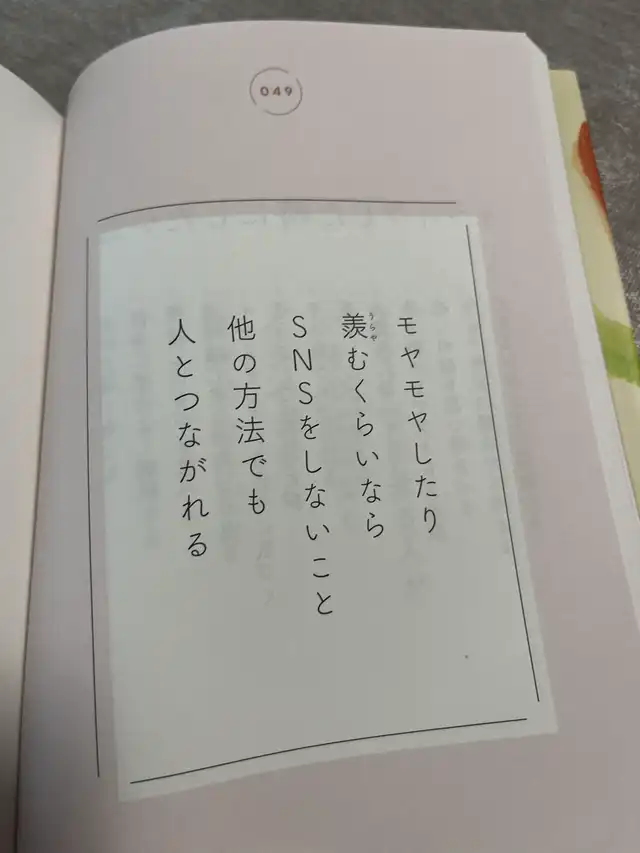 049
モヤモヤしたり
羨むくらいなら
うらや
SNSをしないこと
他の方法でも
人とつながれる